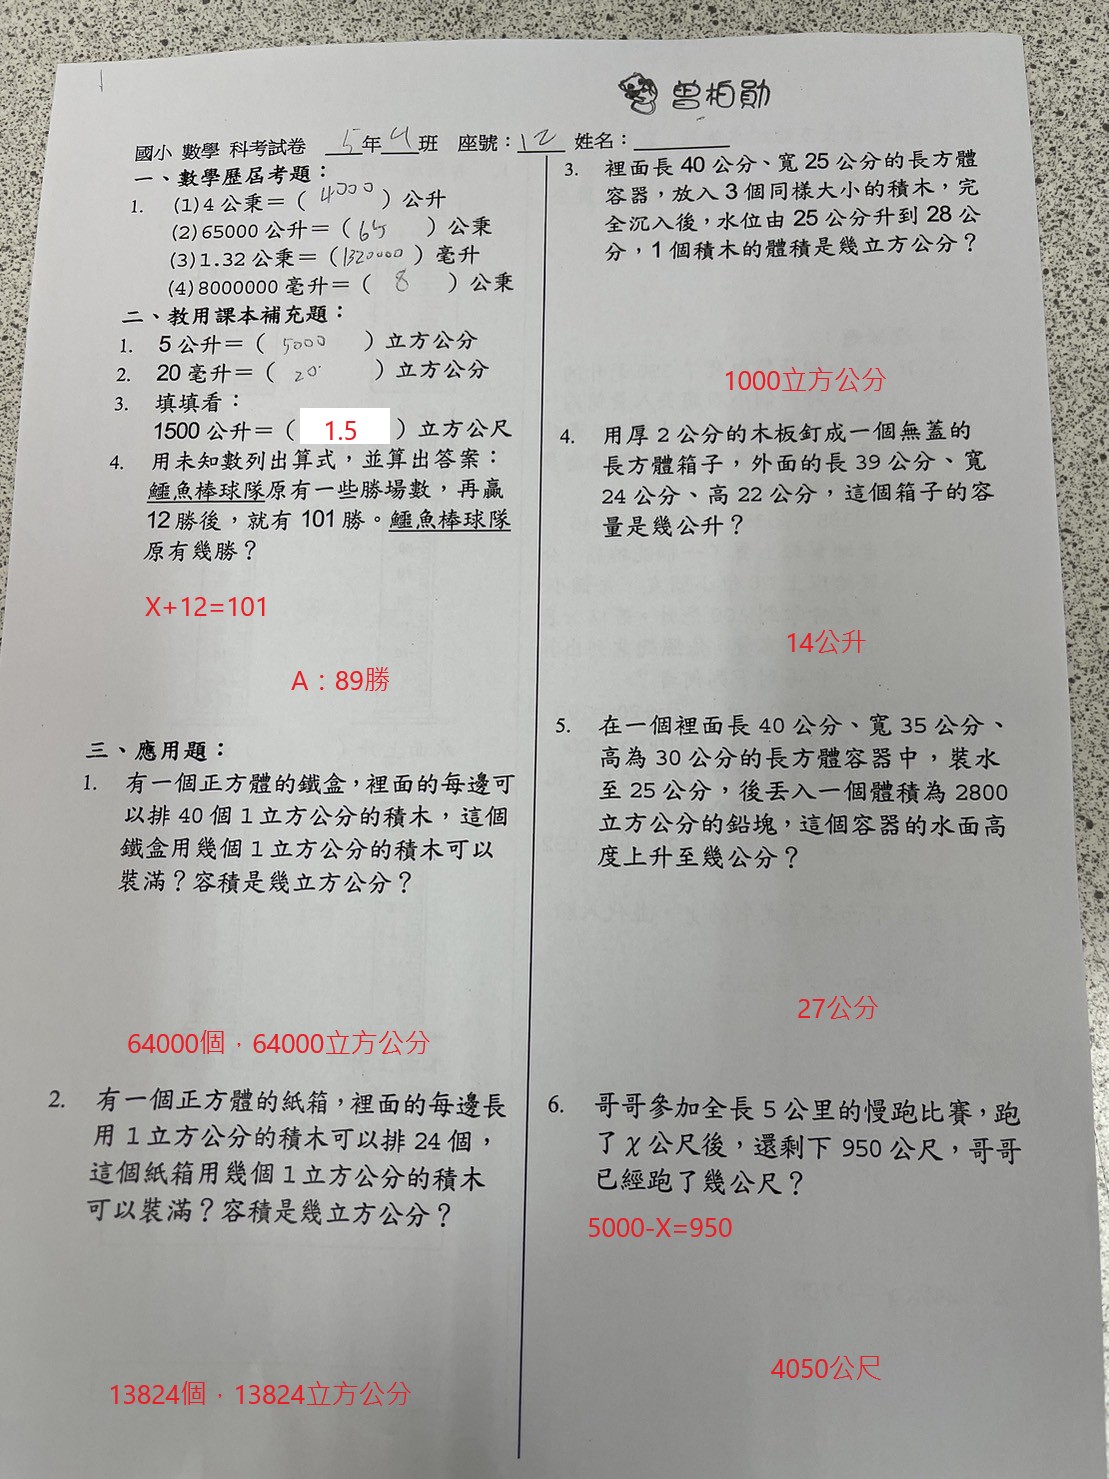 曾柏勛
國小 數學 科考試卷 5年4班 座號：12 姓名：
一、數學歷屆考題：
1. (1)4公秉＝( 4000 )公升
(2)65000公升＝( 65 )公秉
(3)1.32公秉＝( 1320000 )毫升
(4)8000000毫升＝( 8 )公秉
二、教用課本補充題：
1. 5公升＝( 5000 )立方公分
2. 20毫升＝( 20 )立方公分
3. 填填看：
1500公升＝( 1.5 )立方公尺
4. 用未知數列出算式，並算出答案：
鱷魚棒球隊原有一些勝場數，再贏
12勝後，就有101勝。鱷魚棒球隊
原有幾勝？
X+12=101
A：89勝
三、應用題：
1. 有一個正方體的鐵盒，裡面的每邊可
以排40個1立方公分的積木，這個
鐵盒用幾個1立方公分的積木可以
裝滿？容積是幾立方公分？
64000個，64000立方公分
2. 有一個正方體的紙箱，裡面的每邊長
用1立方公分的積木可以排24個，
這個紙箱用幾個1立方公分的積木
可以裝滿？容積是幾立方公分？
13824個，13824立方公分
3. 裡面長40公分、寬25公分的長方體
容器，放入3個同樣大小的積木，完
全沉入後，水位由25公分升到28公
分，1個積木的體積是幾立方公分？
1000立方公分
4. 用厚2公分的木板釘成一個無蓋的
長方體箱子，外面的長39公分、寬
24公分、高22公分，這個箱子的容
量是幾公升？
14公升
5. 在一個裡面長40公分、寬35公分、
高為30公分的長方體容器中，裝水
至25公分，後丟入一個體積為2800
立方公分的鉛塊，這個容器的水面高
度上升至幾公分？
27公分
6. 哥哥參加全長5公里的慢跑比賽，跑
了χ公尺後，還剩下950公尺，哥哥
已經跑了幾公尺？
5000-X=950
4050公尺